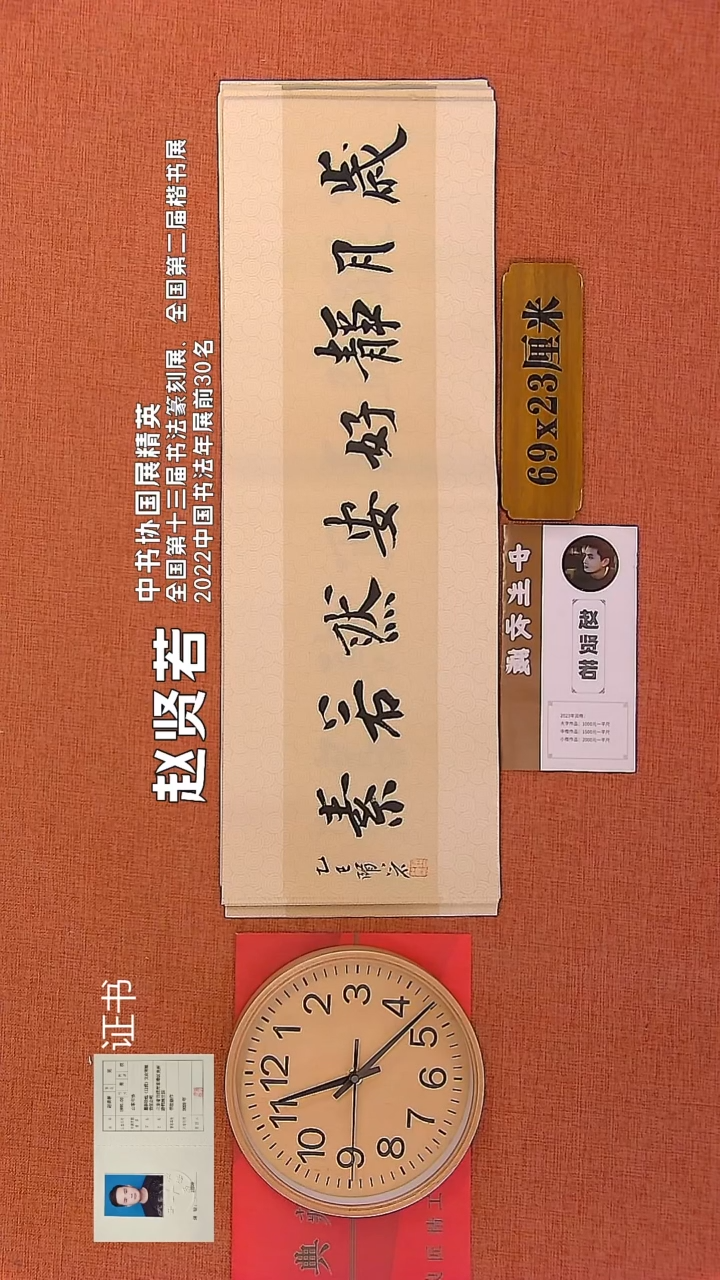 赵贤若
中书协国展精英
全国第十三届书法篆刻展、全国第二届楷书展
2022中国书法年展前30名
证书
歲月靜好安然若素
乙巳
贤若
69x23厘米
赵贤若
12
1
2
3
4
5
6
7
8
9
10
11
典